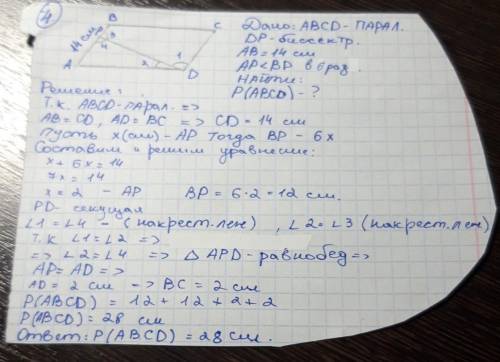 4
B
C
14 см
P
3
4
1
2
A
D
Дано: ABCD - парал.
DP - биссектр.
AB = 14 см
AP < BP в 6 раз.
Найти:
P(ABCD) - ?
Решение:
Т.к. ABCD - парал. =>
AB = CD, AD = BC => CD = 14 см
Пусть x (см) - AP тогда BP - 6x
Составим и решим уравнение:
x + 6x = 14
7x = 14
x = 2 - AP BP = 6 · 2 = 12 см.
PD - секущая
∠1 = ∠4 - (накрест.леж) , ∠2 = ∠3 (накрест.леж)
т.к ∠1 = ∠2 =>
=> ∠2 = ∠4 => △ APD - равнобед =>
AP = AD =>
AD = 2 см -> BC = 2 см
P(ABCD) = 12 + 12 + 2 + 2
P(ABCD) = 28 см
Ответ: P(ABCD) = 28 см.